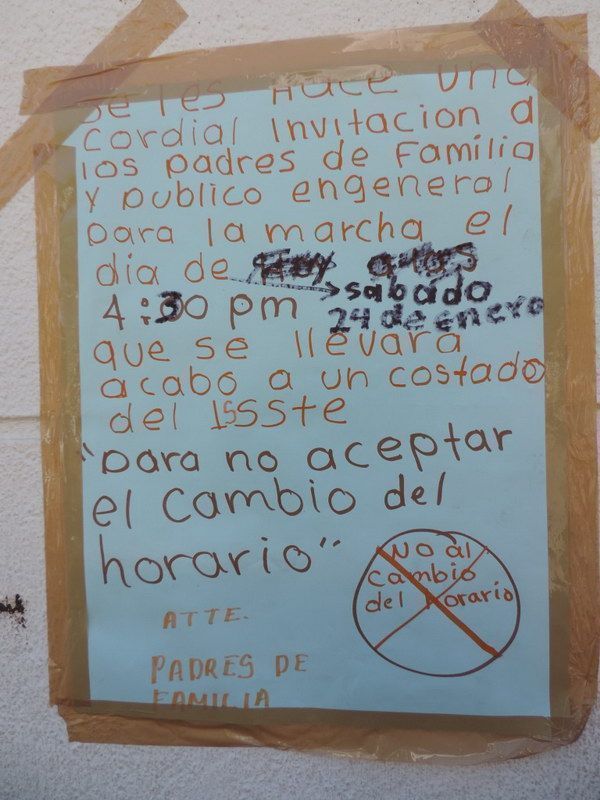 Se les Hace una
Cordial Invitacion a
los padres de Familia
y publico engeneral
para la marcha el
dia de Hoy a las
sabado
4:30 pm
24 de enero
que se llevara
acabo a un costado
del ISSSte
"para no aceptar
el cambio del
horario"
NO al
cambio
del horario
ATTE.
PADRES DE
FAMILIA